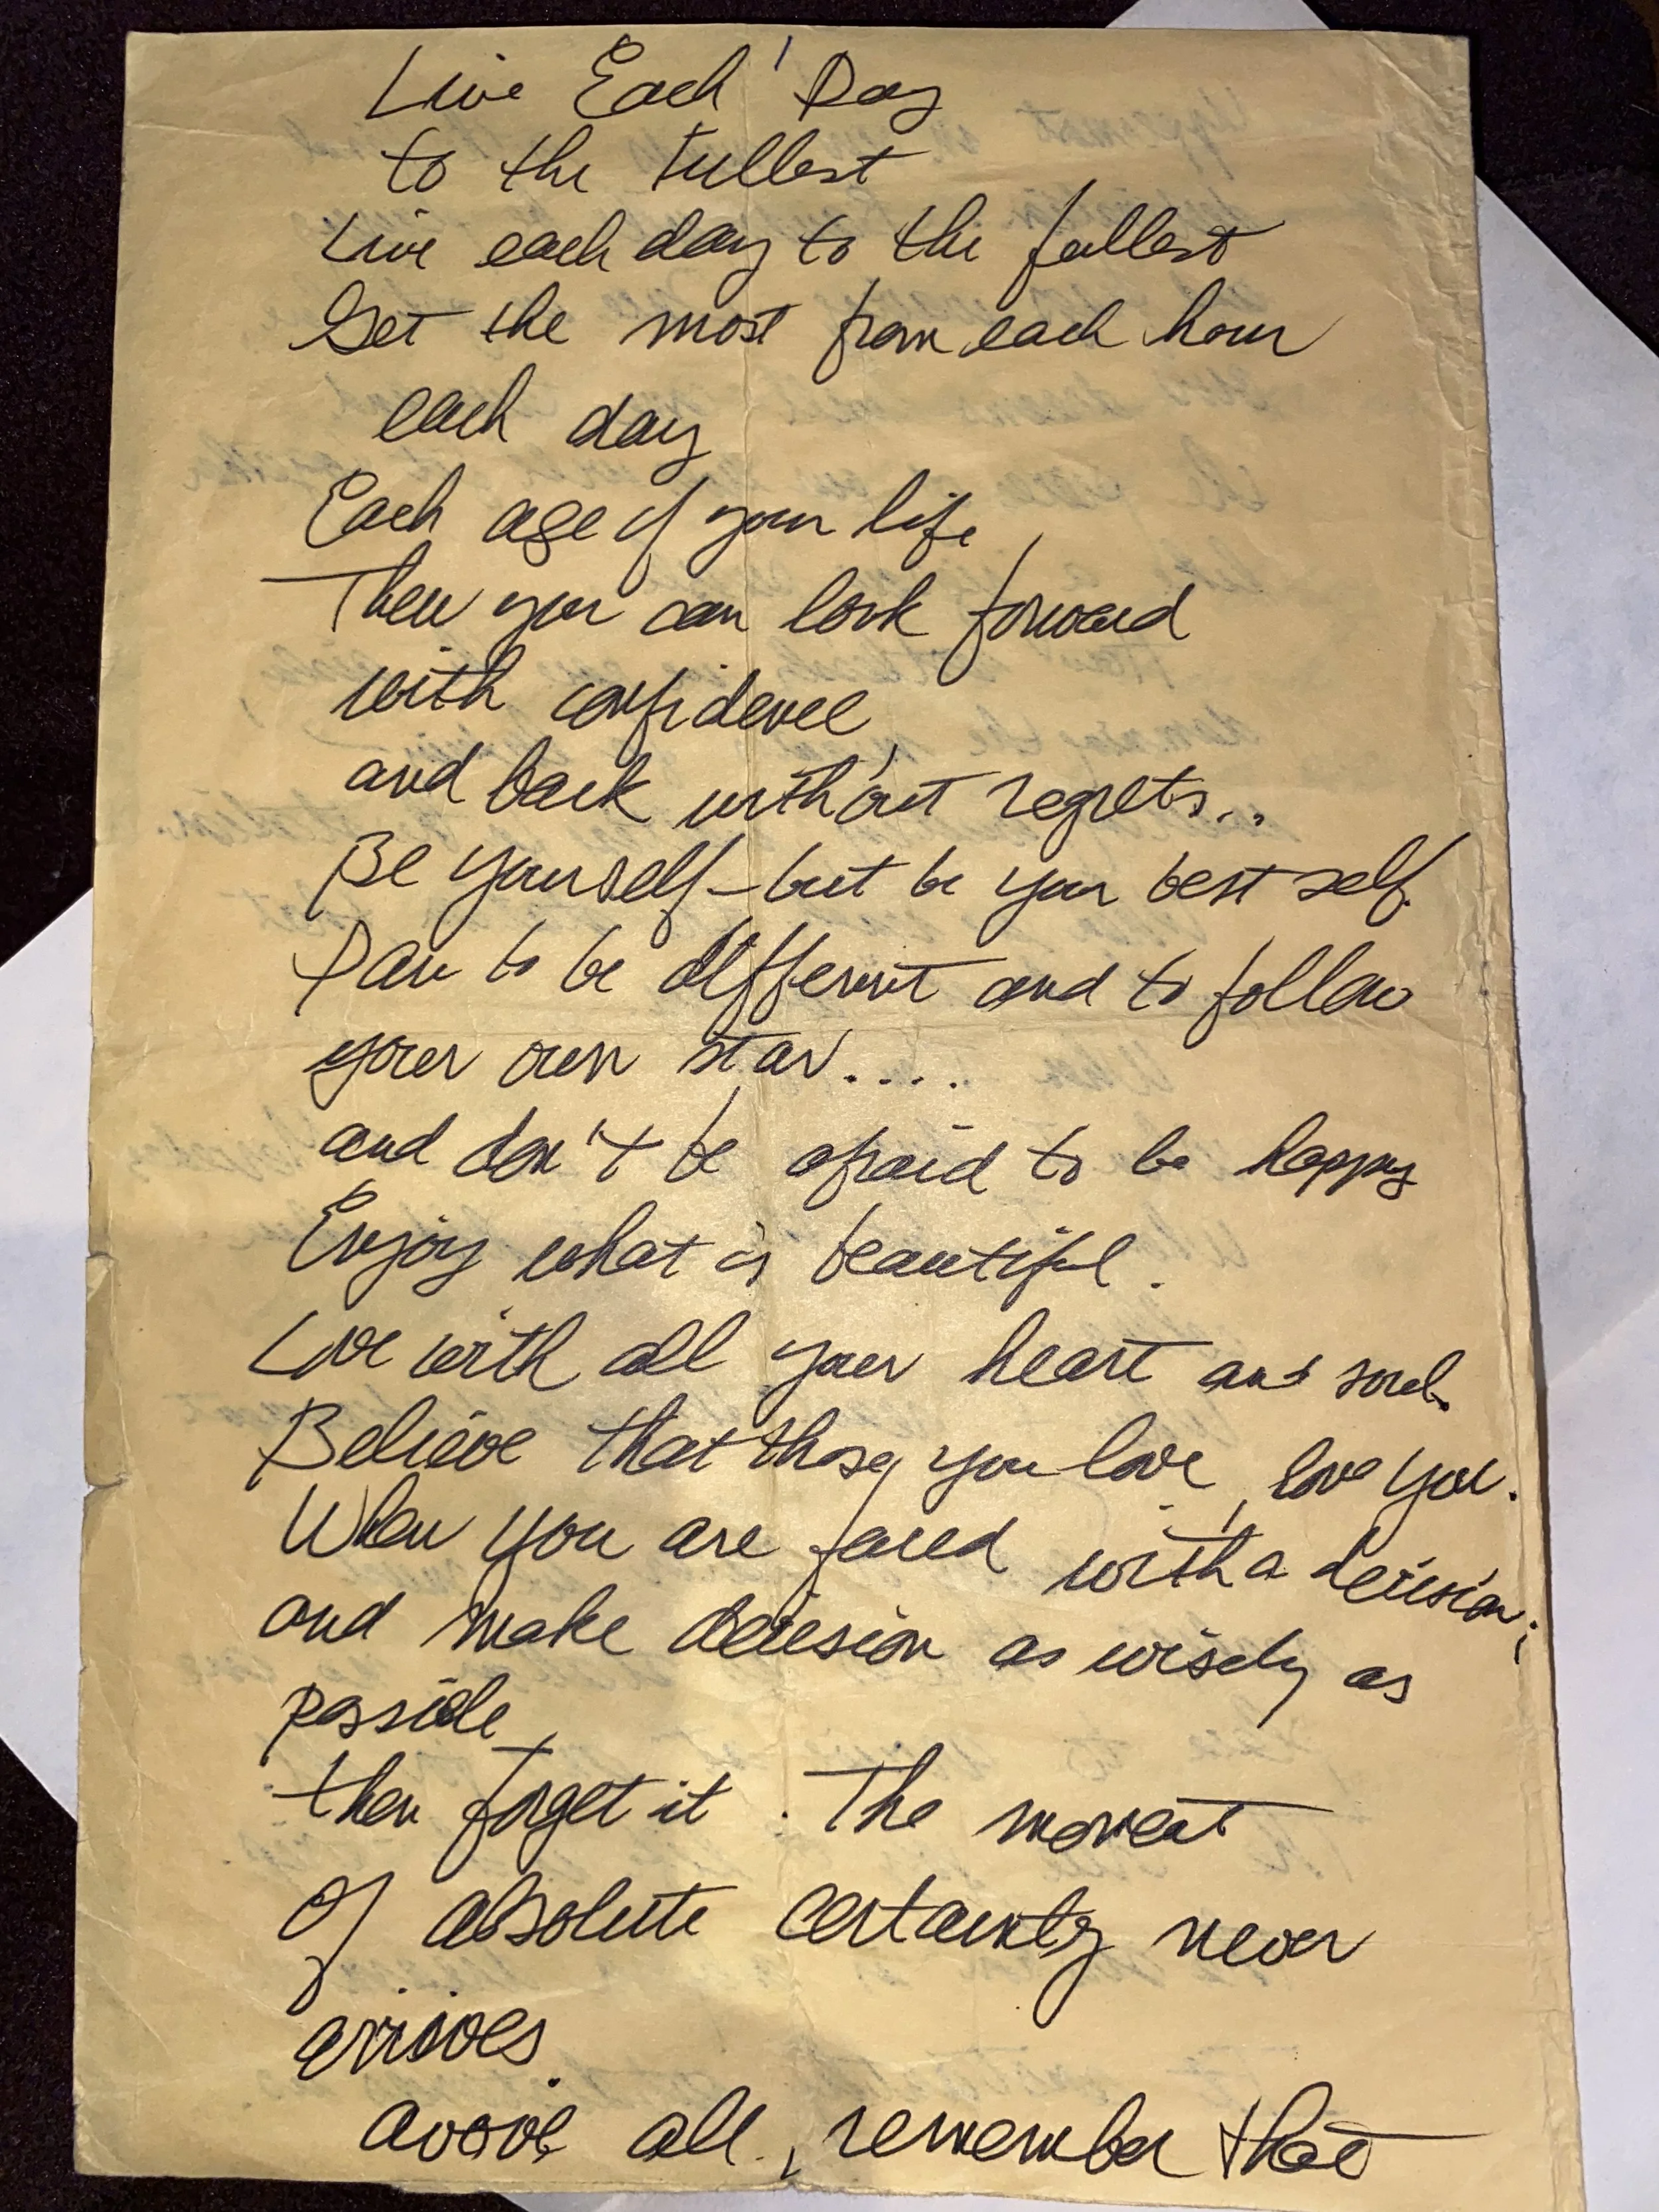 Live Each Day
to the Fullest
Live each day to the fullest
Get the most from each hour
each day
Each age of your life
Then you can look forward
with confidence
and back without regrets...
Be yourself - but be your best self.
Dare to be different and to follow
your own star....
and don't be afraid to be happy
Enjoy what is beautiful.
Love with all your heart and soul.
Believe that those you love, love you.
When you are faced with a decision,
and make decision as wisely as
possible
then forget it. The moment
Of absolute certainty never
arrives.
above all, remember that